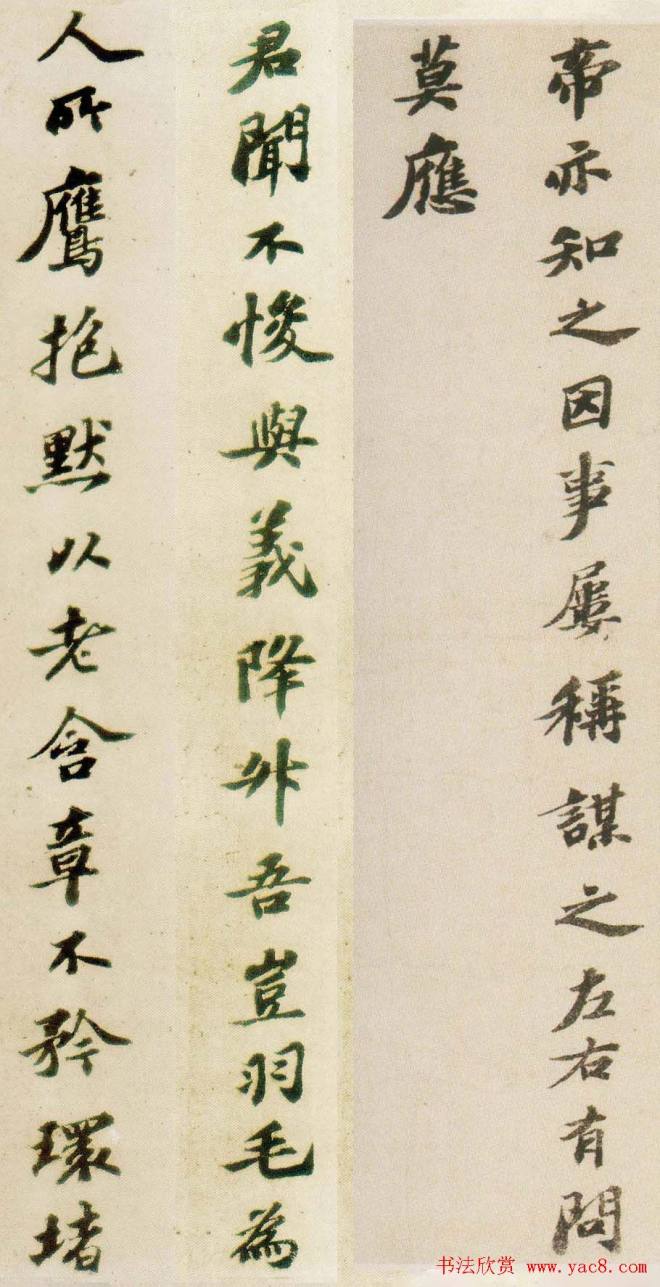 帝亦知之因事屢稱謀之左右有問
莫應
君聞不悛與義降外吾豈羽毛為
人所鷹抱默以老含章不矜環堵
书法欣赏 www.yac8.com